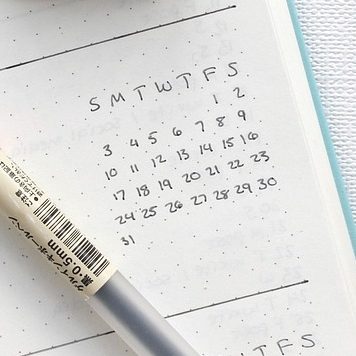 S M T W T F S
1 2
3 4 5 6 7 8 9
10 11 12 13 14 15 16
17 18 19 20 21 22 23
24 25 26 27 28 29 30
31
黒・0.5mm
W T F S